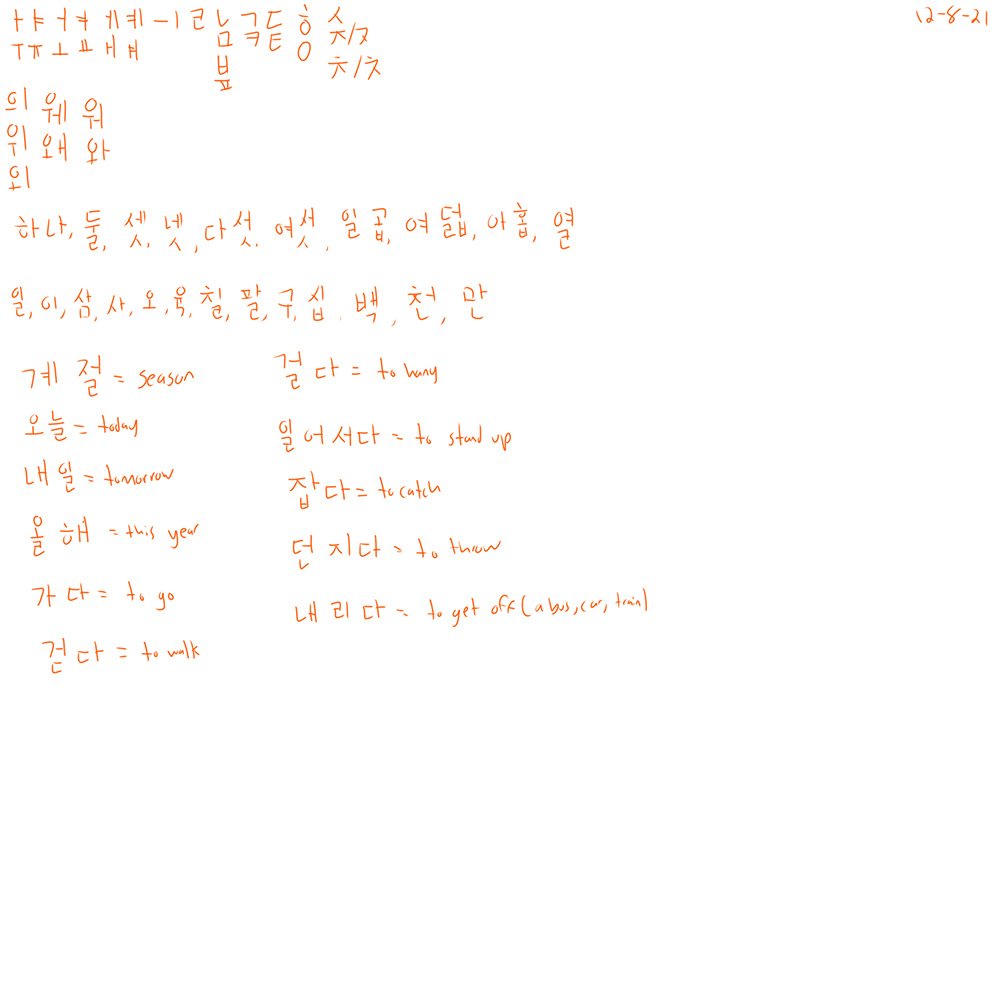 12-8-21
ㅏㅑㅓㅕㅔㅖㅡㅣㄹㄴㄱㄷㅎㅅ
ㅜㅠㅗㅛㅐㅒ ㅁㅋㅌㅇㅈ/ㅈ
ㅂ ㅊ/ㅊ
ㅍ
의 웨 워
위 왜 와
외
하나, 둘, 셋, 넷, 다섯, 여섯, 일곱, 여덟, 아홉, 열
일, 이, 삼, 사, 오, 육, 칠, 팔, 구, 십, 백, 천, 만
계절 = season
걸다 = to hang
오늘 = today
일어서다 = to stand up
내일 = tomorrow
잡다 = to catch
올해 = this year
던지다 = to throw
가다 = to go
내리다 = to get off (a bus, car, train)
걷다 = to walk